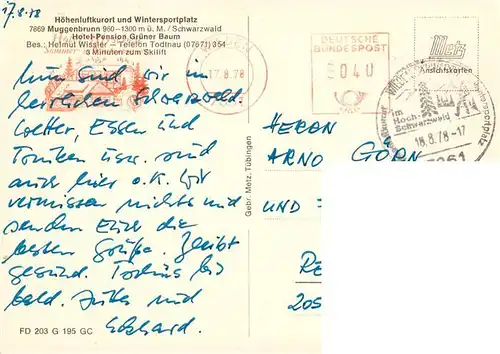 17.8.78
Höhenluftkurort und Wintersportplatz
7869 Muggenbrunn 960–1300 m ü. M. / Schwarzwald
Hotel-Pension Grüner Baum
Bes.: Helmut Wissler – Telefon Todtnau (07671) 354
3 Minuten zum Skilift
Nun sind wir im
herrlichen Schwarzwald.
Wetter, Essen und
Trinken usw. sind
auch hier o.K. Wir
vermissen nichts und
senden Euch die
besten Grüße. Bleibt
gesund. Tschüs bis
bald. Jutta und
Eckhard.
FD 203 G 195 GC
Gebr. Metz, Tübingen
17.8.78
DEUTSCHE
BUNDESPOST
040
Metz
Ansichtskarten
im
Hoch-
Schwarzwald
18.8.78-17
HERRN
ARNO GÖRN
UND
205